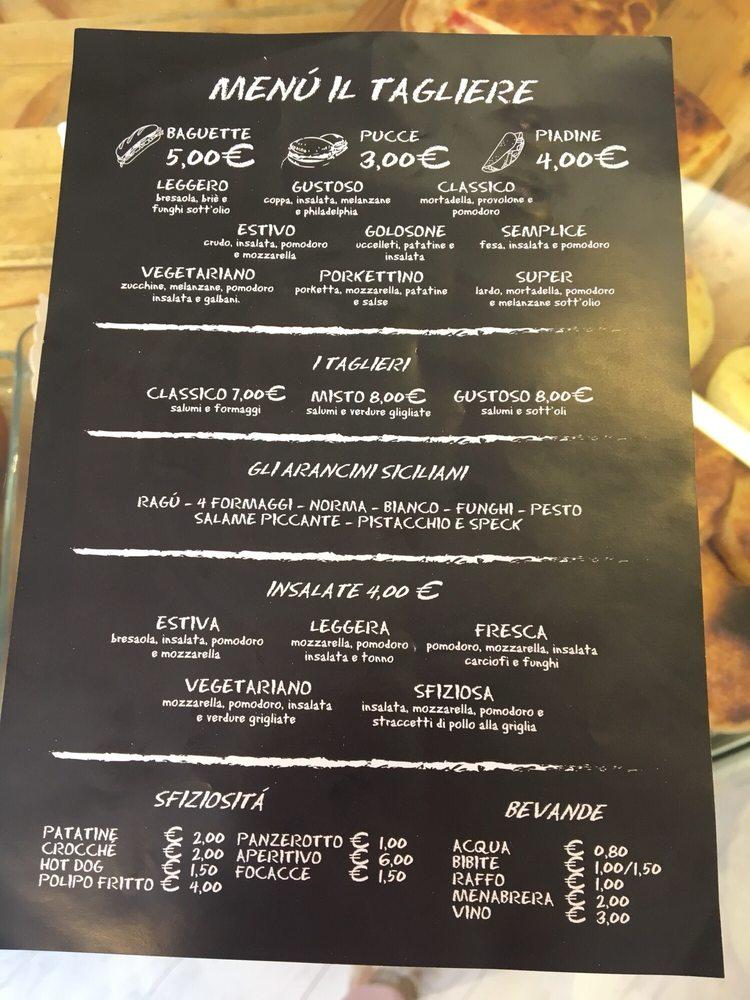 MENÚ IL TAGLIERE
BAGUETTE
5,00€
PUCCE
3,00€
PIADINE
4,00€
LEGGERO
bresaola, briè e
funghi sott'olio
GUSTOSO
coppa, insalata, melanzane
e philadelphia
CLASSICO
mortadella, provolone e
pomodoro
ESTIVO
crudo, insalata, pomodoro
e mozzarella
GOLOSONE
uccelleti, patatine e
insalata
SEMPLICE
fesa, insalata e pomodoro
VEGETARIANO
zucchine, melanzane, pomodoro
insalata e galbani.
PORKETTINO
porketta, mozzarella, patatine
e salse
SUPER
lardo, mortadella, pomodoro
e melanzane sott'olio
I TAGLIERI
CLASSICO 7,00€
salumi e formaggi
MISTO 8,00€
salumi e verdure gligliate
GUSTOSO 8,00€
salumi e sott'oli
GLI ARANCINI SICILIANI
RAGÚ - 4 FORMAGGI - NORMA - BIANCO - FUNGHI - PESTO
SALAME PICCANTE - PISTACCHIO E SPECK
INSALATE 4,00 €
ESTIVA
bresaola, insalata, pomodoro
e mozzarella
LEGGERA
mozzarella, pomodoro
insalata e tonno
FRESCA
pomodoro, mozzarella, insalata
carciofi e funghi
VEGETARIANO
mozzarella, pomodoro, insalata
e verdure grigliate
SFIZIOSA
insalata, mozzarella, pomodoro e
straccetti di pollo alla griglia
SFIZIOSITÁ
PATATINE € 2,00
CROCCHÉ € 2,00
HOT DOG € 1,50
POLIPO FRITTO € 4,00
PANZEROTTO € 1,00
APERITIVO € 6,00
FOCACCE € 1,50
BEVANDE
ACQUA € 0,80
BIBITE € 1,00/1,50
RAFFO € 1,00
MENABRERA € 2,00
VINO € 3,00